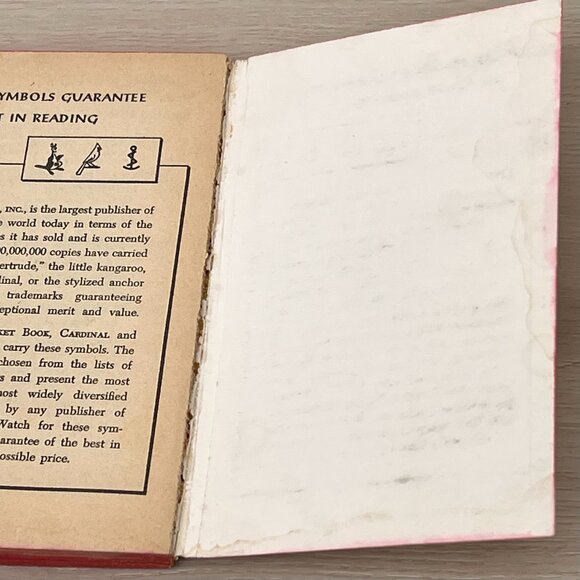 SYMBOLS GUARANTEE
IN READING
INC., is the largest publisher of
world today in terms of the
it has sold and is currently
000,000 copies have carried
the little kangaroo,
or the stylized anchor
trademarks guaranteeing
exceptional merit and value.
BOOK, CARDINAL and
carry these symbols. The
chosen from the lists of
and present the most
most widely diversified
by any publisher of
Watch for these sym-
guarantee of the best in
possible price.